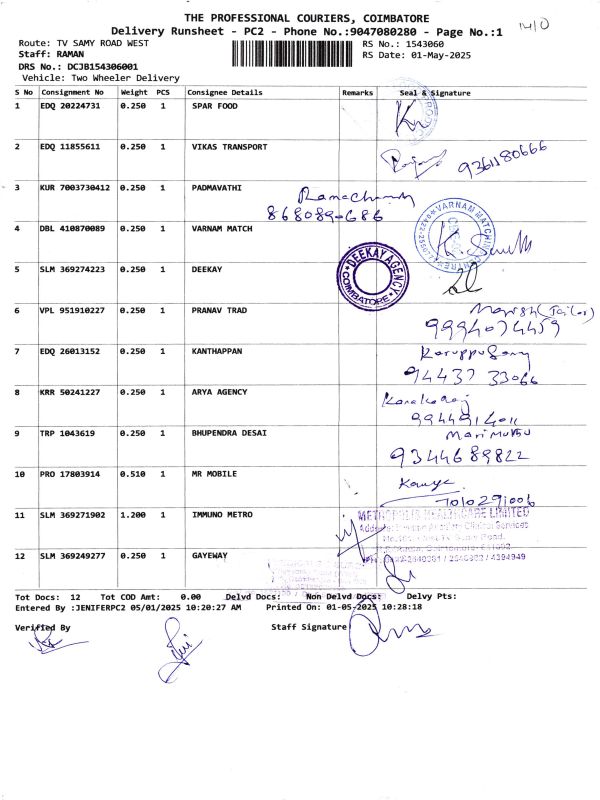 THE PROFESSIONAL COURIERS, COIMBATORE
Delivery Runsheet - PC2 - Phone No.:9047080280 - Page No.:1
Route: TV SAMY ROAD WEST RS No.: 1543060
Staff: RAMAN RS Date: 01-May-2025
DRS No.: DCJB154306001
Vehicle: Two Wheeler Delivery
S No Consignment No Weight PCS Consignee Details Remarks Seal & Signature
1 EDQ 20224731 0.250 1 SPAR FOOD
2 EDQ 11855611 0.250 1 VIKAS TRANSPORT 9361180666
3 KUR 7003730412 0.250 1 PADMAVATHI
868089-686
4 DBL 410870089 0.250 1 VARNAM MATCH VARNAM MATCHING
5 SLM 369274223 0.250 1 DEEKAY DEEKAY AGENCY COIMBATORE
6 VPL 951910227 0.250 1 PRANAV TRAD (Tailor)
9994074459
7 EDQ 26013152 0.250 1 KANTHAPPAN Karuppusamy
94437 33066
8 KRR 50241227 0.250 1 ARYA AGENCY Kanakaraj
9944914011
9 TRP 1043619 0.250 1 BHUPENDRA DESAI Marimuthu
9344689822
10 PRO 17803914 0.510 1 MR MOBILE
7010291006
11 SLM 369271902 1.200 1 IMMUNO METRO METROPOLIS HEALTHCARE LIMITED
12 SLM 369249277 0.250 1 GAYEWAY
Tot Docs: 12 Tot COD Amt: 0.00 Delvd Docs: Non Delvd Docs: Delvy Pts:
Entered By :JENIFERPC2 05/01/2025 10:20:27 AM Printed On: 01-05-2025 10:28:18
Verified By Staff Signature